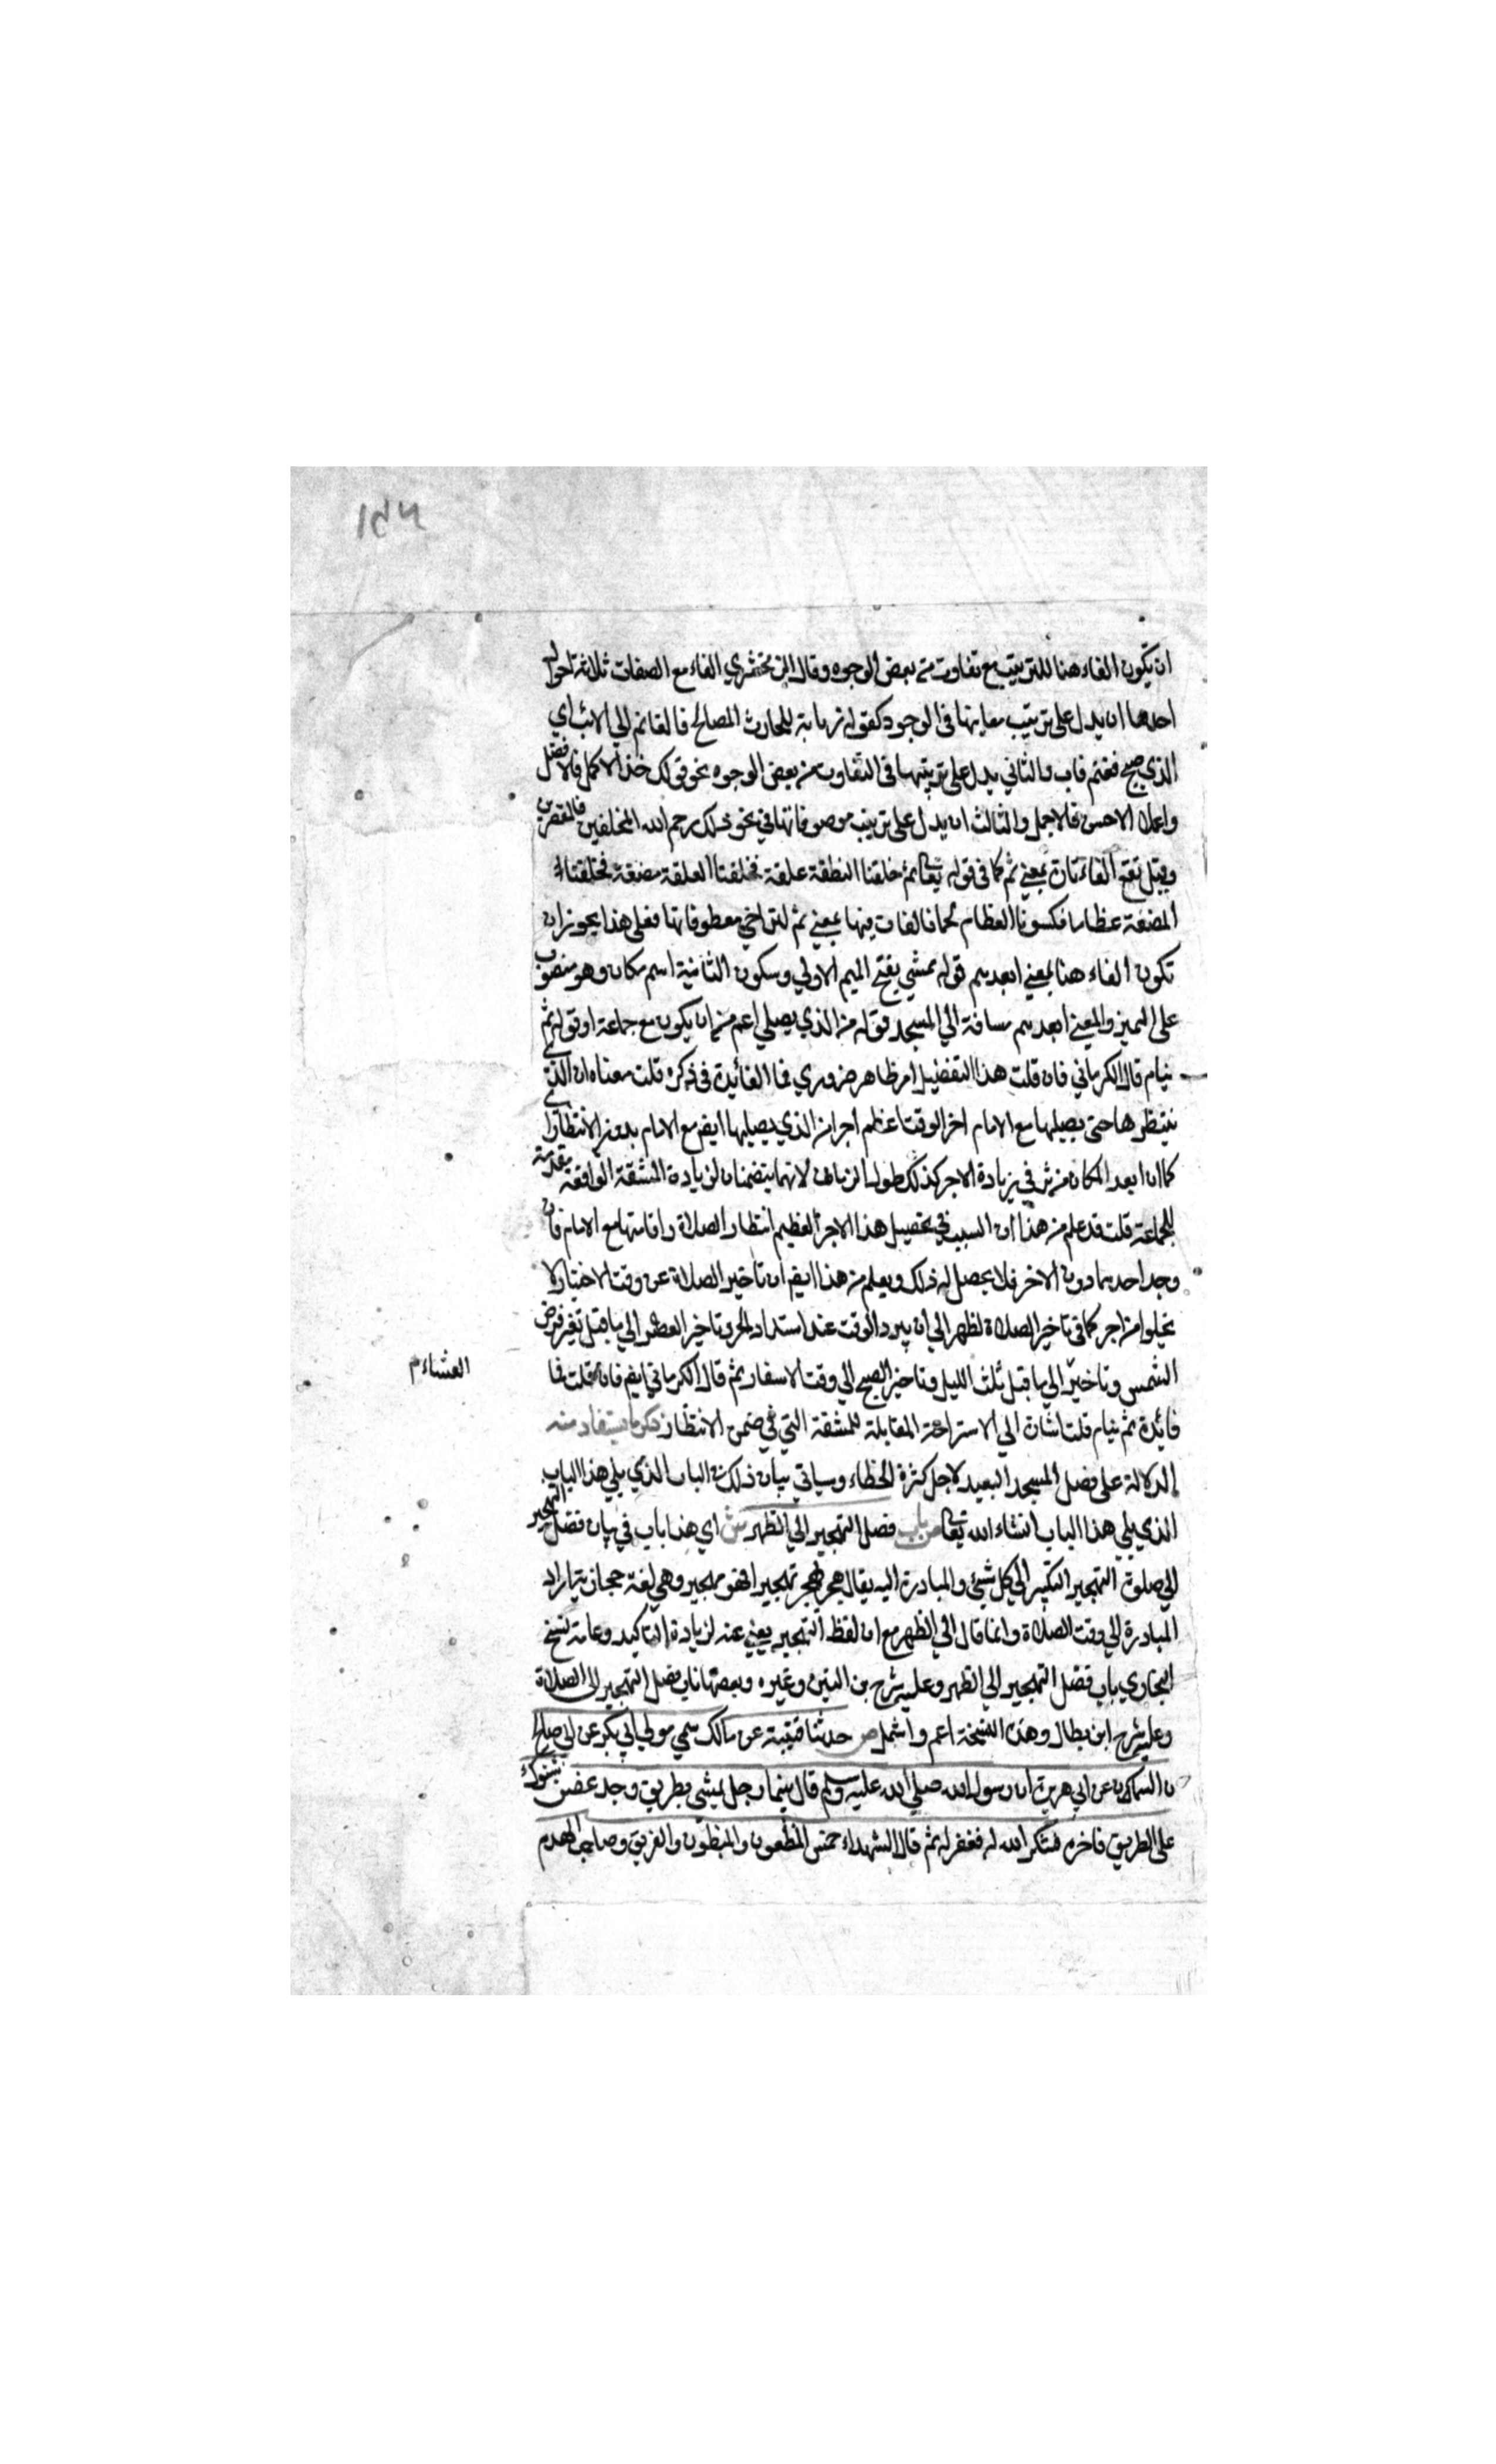 ان تكون الفاء هنا للترتيب مع تفاوت من بعض الوجوه وقال الزمخشري الفاء مع الصفات ثلاثة احوال
احدها ان يدل على ترتيب معانيها في الوجود كقوله زيابة للحارث الصالح فالغانم الي الائب اي
الذي صبح فغنم فاب والثاني يدل على ترتيبها في التفاوت من بعض الوجوه نحو قولك خذ الاكمل فالافضل
واعمل الاحسن فالاجمل والثالث ان يدل على ترتيب موصوفاتها في نحو ذلك رحم الله المخلقين فالمقصرين
وقيل تقع الفاء تارة بمعني ثم كما في قوله تعالى ثم خلقنا النطفة علقة فخلقنا العلقة مضغة فخلقنا
المضغة عظاما فكسونا العظام لحما فالفات فيها بمعني ثم لتراخي معطوفاتها فعلى هذا يجوز ان
تكون الفاء هنا بمعني ابعدهم قوله ممشي بفتح الميم الاولي وسكون الثانية اسم مكان وهو منصوب
على التميز والمعني ابعدهم مسافة الي المسجد قوله من الذي يصلي اعم من ان يكون مع جماعة او قوله ثم
ينام قال الكرماني فان قلت هذا التفضيل امر ظاهر ضروري فما الفائدة في ذكره قلت معناه ان الذي
ينتظرها حتى يصليها مع الامام اخر الوقت اعظم اجرا من الذي يصليها ايضم مع الامام بدون الانتظار
كما ان ابعد المكان مؤثر في زيادة الاجر كذلك طول الزمان لانهما يتضمنان لزيادة المشقة الواقعة مقدمة
للجماعة قلت قد علم من هذا ان السبب في تحصيل هذا الاجر العظيم انتظار الصلاة واقامتها مع الامام فان
وجد احدهما دون الاخر فلا يحصل له ذلك ويعلم من هذا ايضم ان تاخير الصلاة عن وقت الاختيار لا
يخلوا من اجر كما في تاخير الصلاة لظهر الي ان يبرد الوقت عند اشتداد الحر وتاخير العصر الي ما قبل تغير قرض
الشمس وتاخير الي ما قبل ثلث الليل وتاخير الصبح الي وقت الاسفار ثم قال الكرماني ايضم فان قلت فما
العشاء م
فائدة ثم ينام قلت اشارة الي الاستراحة المقابلة للمشقة التي في ضمن الانتظار ذكر ما يستفاد منه
الدلالة على فضل المسجد البعيد لاجل كثرة الخطاء وسياتي بيان ذلك في الباب الذي يلي هذا الباب
الذي يلي هذا الباب انشاء الله تعالى ص باب فضل التهجير الي الظهر ش اي هذا باب في بيان فضل التهجير
الي صلوة التهجير التبكير الي كل شيئ والمبادرة اليه يقال هجر يهجر تهجيرا فهو مهجر وهي لغة حجازية اراد
المبادرة الي وقت الصلاة وانما قال الي الظهر مع ان لفظ التهجير يغني عنه لزيادة التاكيد وعامة نسخ
البخاري باب فضل التهجير الي الظهر وعليه شرح بن التين وغيره وبعضها باب فضل التهجير الى الصلاة
وعليه شرح ابن بطال وهذه النسخة اعم واشمل ص حدثنا قتيبة عن مالك سمي مولي ابي بكر عن ابي صالح
ن السمان عن ابي هريرة ان رسول الله صلي الله عليه وسلم قال بينما رجل يمشي بطريق وجد غصن شوك
على الطريق فاخره فشكر الله له فغفر له ثم قال الشهداء خمس المطعون والمبطون والغريق وصاحب الهدم